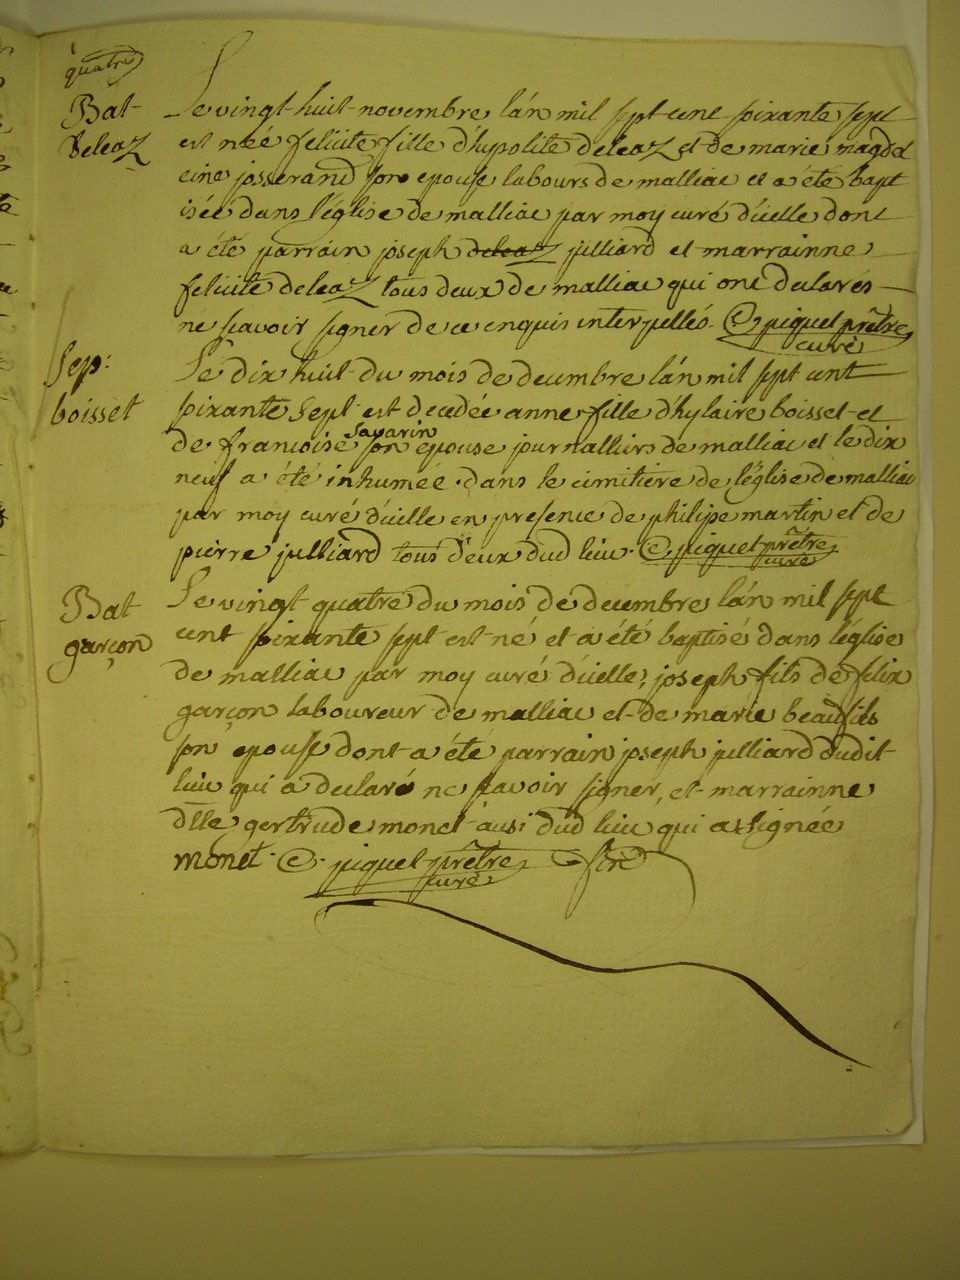 quatre
Bat
Deleaz
Le vingt huit novembre lán mil sept cent soixante sept
est née felicité fille d'hypolite deleaz et de marie magdel
eine josserand son epouse labours de malliac et a été bapt
isée dans l'église de malliac par moy curé d'icelle dont
a été parrain joseph deleaz julliard et marrainne
felicité deleaz tous deux de malliac qui ont declarés
ne scavoir signer de ce enquis interpellés. piquet prêtre
curé
Sep:
boisset
Le dix huit du mois de decembre lán mil sept cent
soixante sept est decedée anne fille d'hylaire boisset et
savarin
de francoise son epouse journalliers de malliac et le dix
neuf a été inhumée dans le cimitiere de l'église de malliac
par moy curé d'icelle en presence de philipe martin et de
pierre julliard tous deux dud lieu. piquet prêtre
curé
Bat
garçon
Le vingt quatre du mois de decembre lán mil sept
cent soixante sept est né et a été baptisé dans l'église
de malliac par moy curé d'icelle, joseph fils de felix
garçon laboureur de malliac et de marie beaufils
son epouse dont a été parrain joseph julliard dudit
lieu qui a declaré ne scavoir signer, et marrainne
dlle gertrude monet aussi dud lieu qui a signée
monet. piquet prêtre
curé